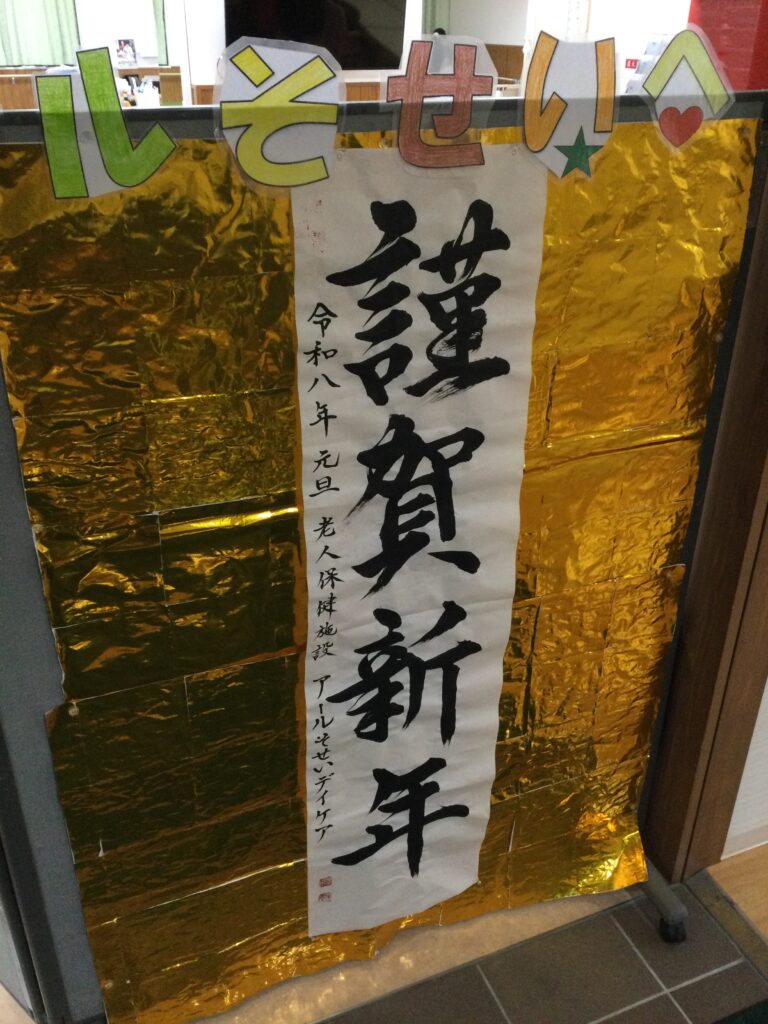 ルそせいへ
謹賀新年
令和八年 元旦 老人保健施設 アールそせいデイケア